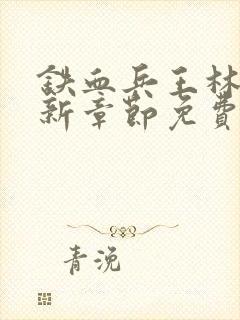 铁血兵王林
新章節免費
青浼